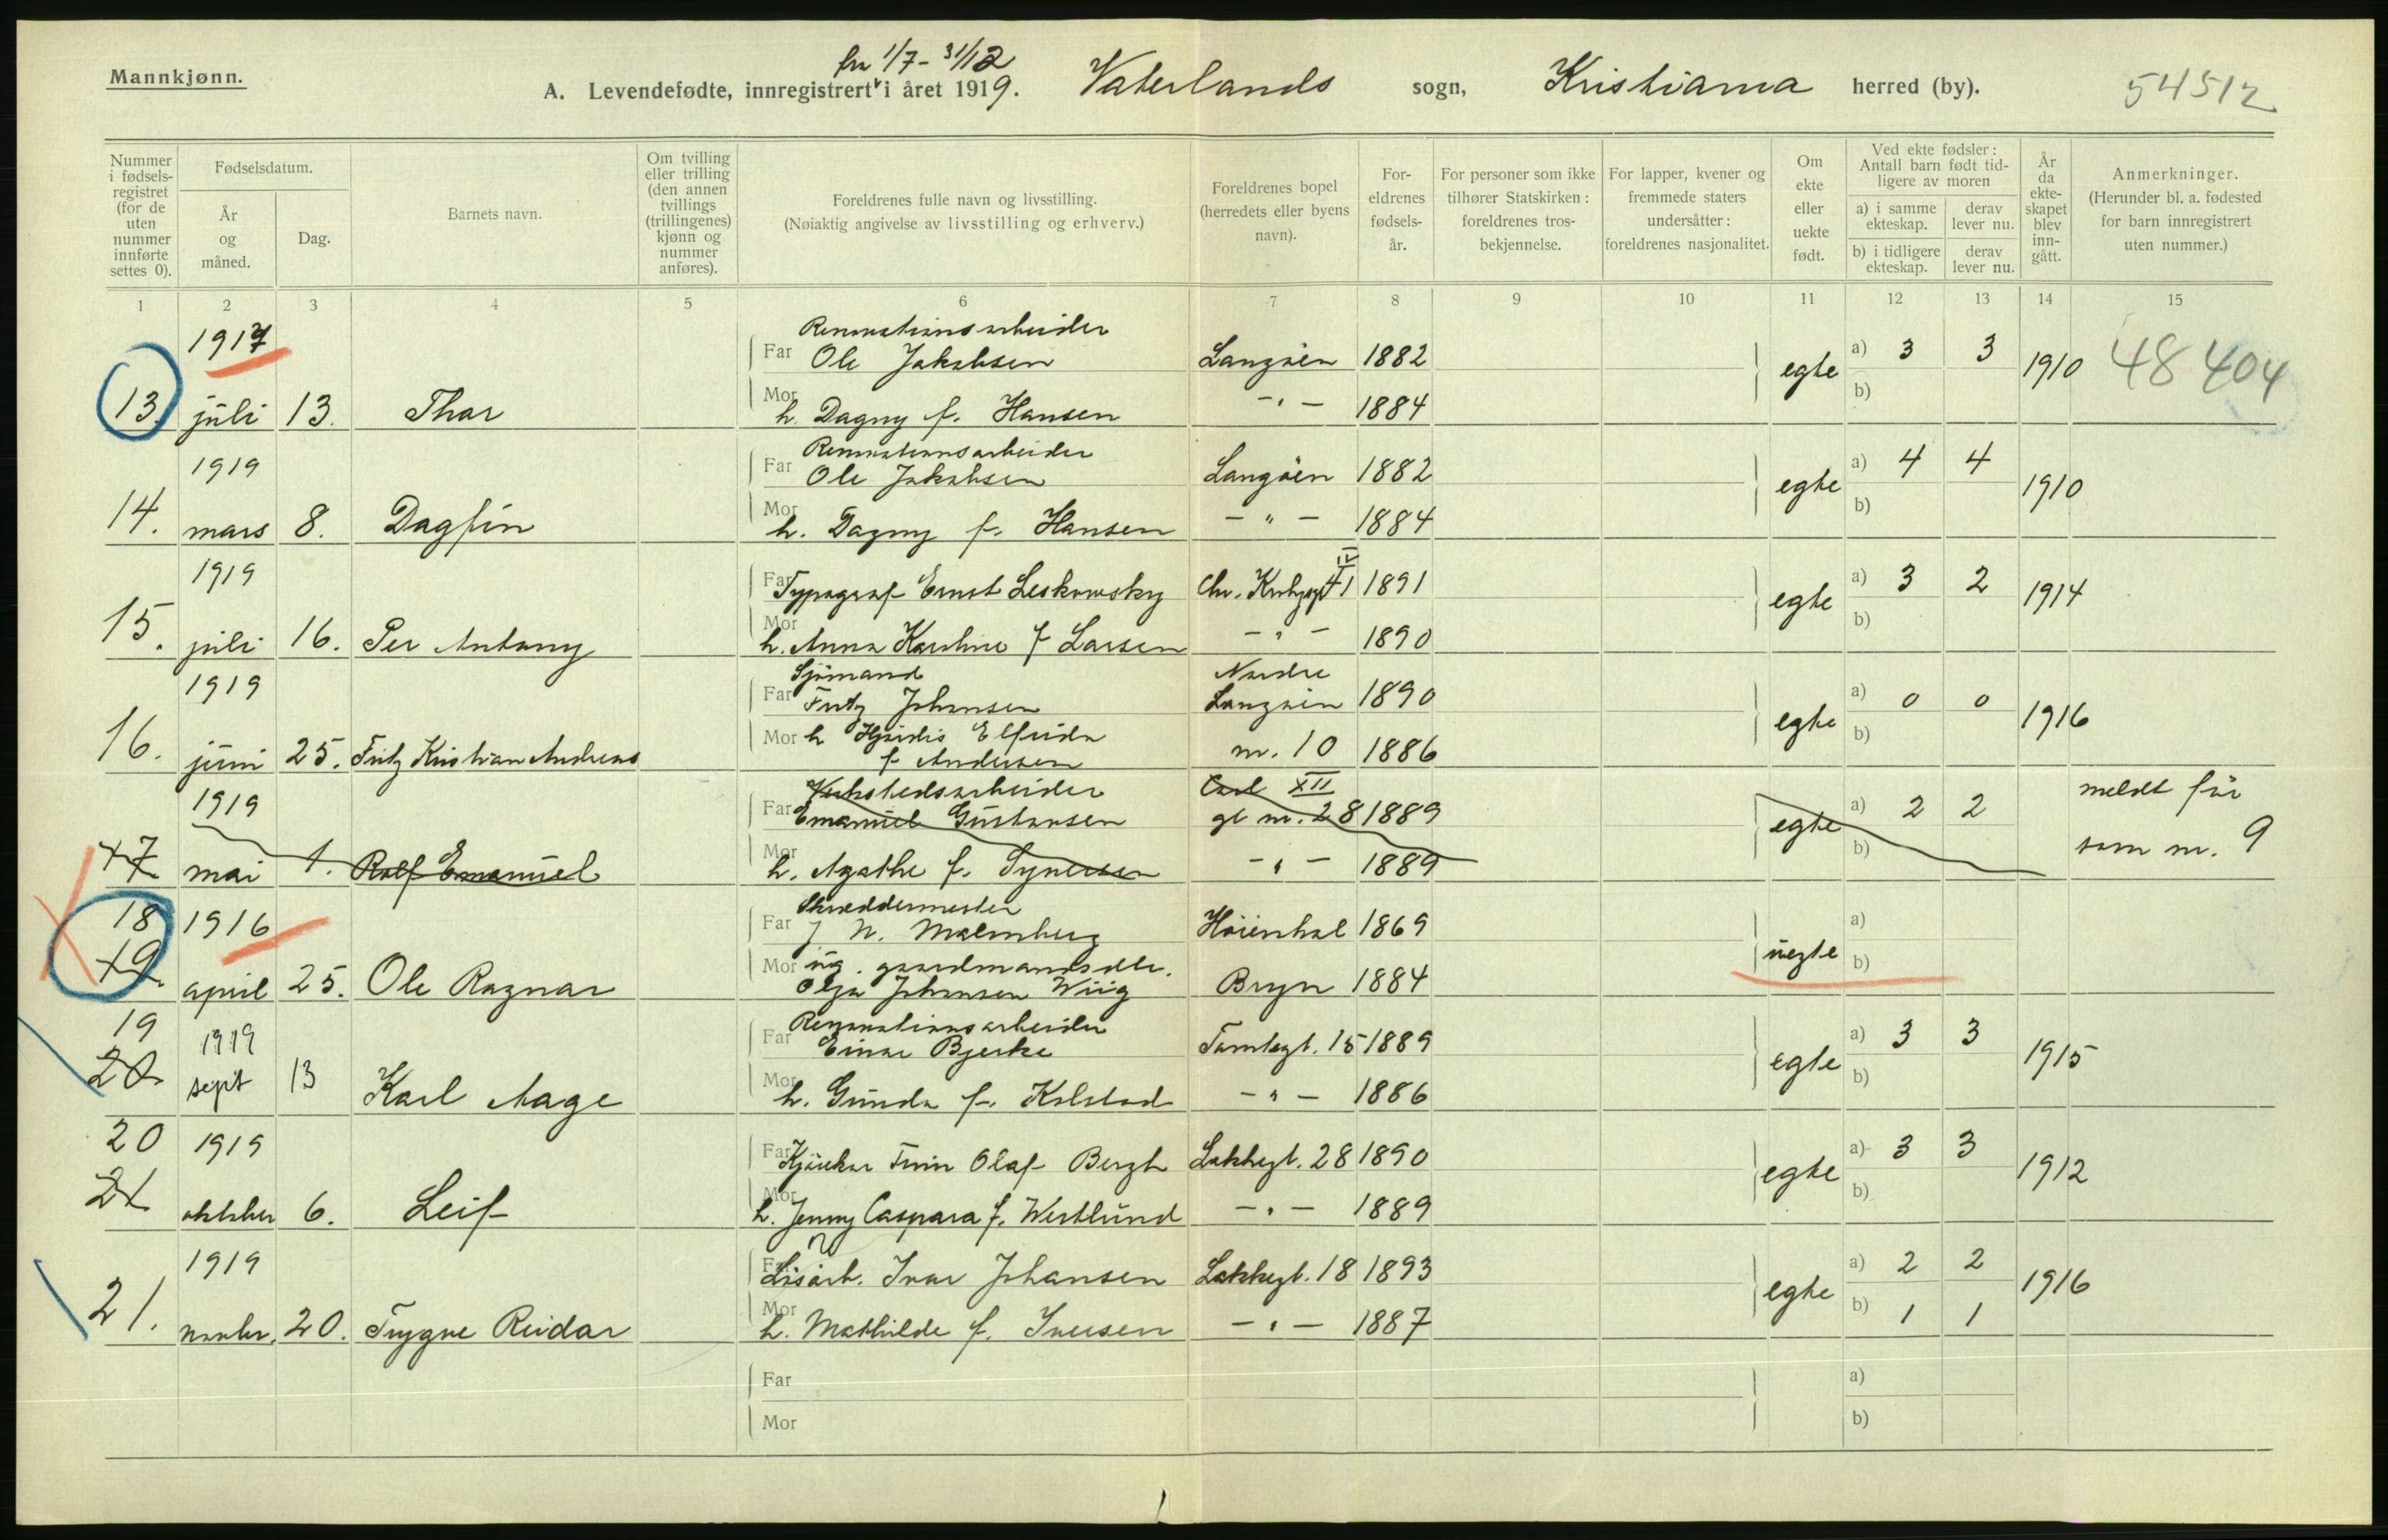 Mannkjønn.
fra 1/7 - 31/12
A. Levendefødte, innregistrert i året 1919. Vaterlands sogn, Kristiania herred (by). 54512
Nummer i fødsels-registret (for de uten nummer innførte settes 0).
Fødselsdatum.
År og måned.
Dag.
Barnets navn.
Om tvilling eller trilling (den annen tvillings (trillingenes) kjønn og nummer anføres).
Foreldrenes fulle navn og livsstilling.
(Nøiaktig angivelse av livsstilling og erhverv.)
Foreldrenes bopel (herredets eller byens navn).
For-eldrenes fødsels-år.
For personer som ikke tilhører Statskirken: foreldrenes tros-bekjennelse.
For lapper, kvener og fremmede staters undersåtter: foreldrenes nasjonalitet.
Om ekte eller uekte født.
Ved ekte fødsler: Antall barn født tid-ligere av moren
a) i samme ekteskap. derav lever nu.
b) i tidligere ekteskap. derav lever nu.
År da ekte-skapet blev inn-gått.
Anmerkninger.
(Herunder bl. a. fødested for barn innregistrert uten nummer.)
1 2 3 4 5 6 7 8 9 10 11 12 13 14 15
Renovationsarbeider
1917 Far Ole Jakobsen Langöen 1882 egte a) 3 3 1910 48404
13. juli 13. Thor Mor h. Dagny f. Hansen -"- 1884 b)
Renovationsarbeider
1919 Far Ole Jakobsen Langöen 1882 egte a) 4 4 1910
14. mars 8. Dagfin Mor h. Dagny f. Hansen -"- 1884 b)
1919 Far Typograf Ernst Leskowsky Chr. Krohgsgt 41 IV 1891 egte a) 3 2 1914
15. juli 16. Per Antony Mor h. Anna Karoline f Larsen -"- 1890 b)
Sjömand Nordre
1919 Far Fritz Johansen Langöen 1890 egte a) 0 0 1916
16. juni 25. Fritz Kristian Andreas Mor h Hjördis Elfrida nr. 10 1886 b)
f Andersen
Verkstedsarbeider Carl XII
1919 Far Emanuel Gustavsen gt nr. 28 1889 egte a) 2 2 meldt för
17 mai 1. Rolf Emanuel Mor h. Agathe f. Synersen -"- 1889 b) som nr. 9
Skræddermester
18 1916 Far J. N. Malmberg Höienhal 1869 uegte a)
19 april 25. Ole Ragnar Mor ug. gaardmandsdtr. Bryn 1884 b)
Olga Johansen Wiig
Renovationsarbeider
19 1919 Far Einar Bjerke Tomtegt. 15 1889 egte a) 3 3 1915
20 sept 13 Karl Aage Mor h. Gunda f. Kolstad -"- 1886 b)
20 1919 Far Kjörekar Finn Olaf Bergh Lakkegt. 28 1890 egte a) 3 3 1912
21 oktober 6. Leif Mor h. Jenny Caspara f. Westlund -"- 1889 b)
1919 Far Löisarb. Ivar Johansen Lakkegt. 18 1893 egte a) 2 2 1916
21. novbr. 20. Trygve Reidar Mor h. Mathilde f. Iversen -"- 1887 b) 1 1
Far a)
Mor b)